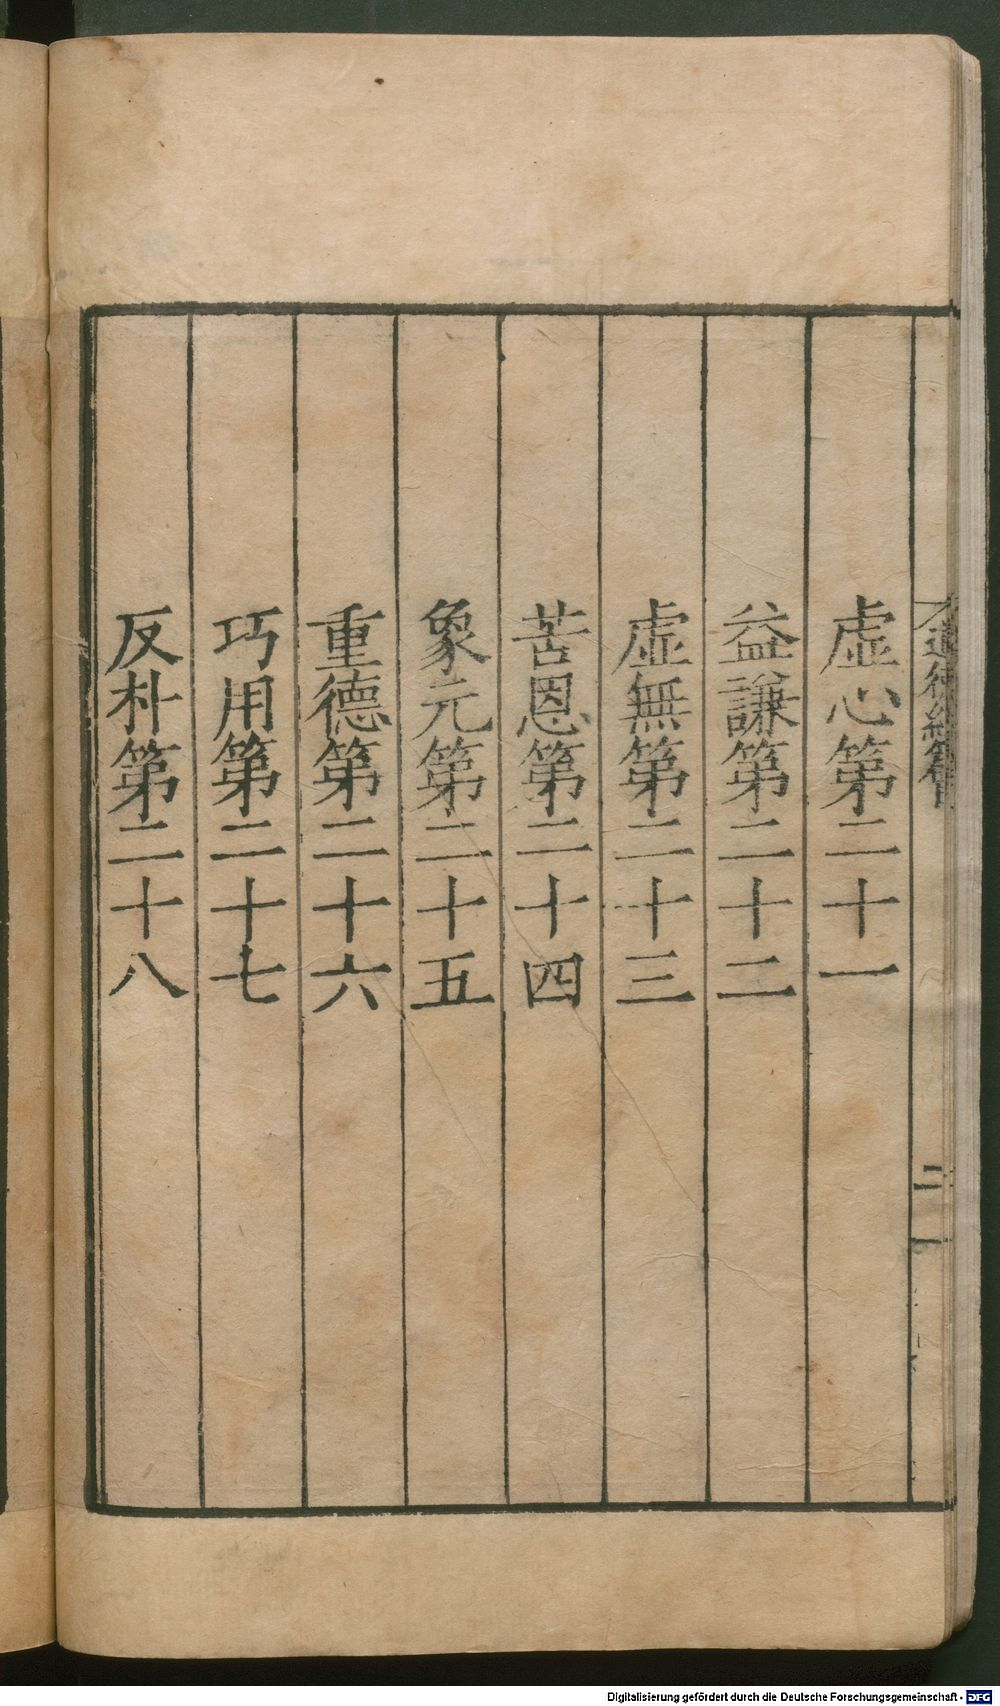 虛心第二十一
益謙第二十二
虛無第二十三
苦恩第二十四
象元第二十五
重德第二十六
巧用第二十七
反朴第二十八
道德經
二
Digitalisierung gefördert durch die Deutsche Forschungsgemeinschaft - DFG